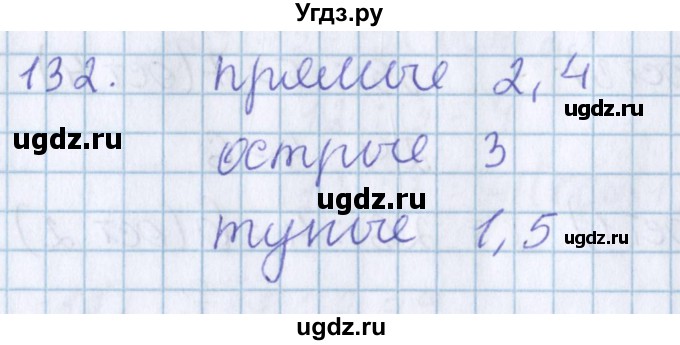 Угдз.ру
132. прямые 2, 4
ugdz.ru
ugdz.ru
острые 3
ugdz.ru
тупые 1, 5 ugdz.ru
ugdz.ru